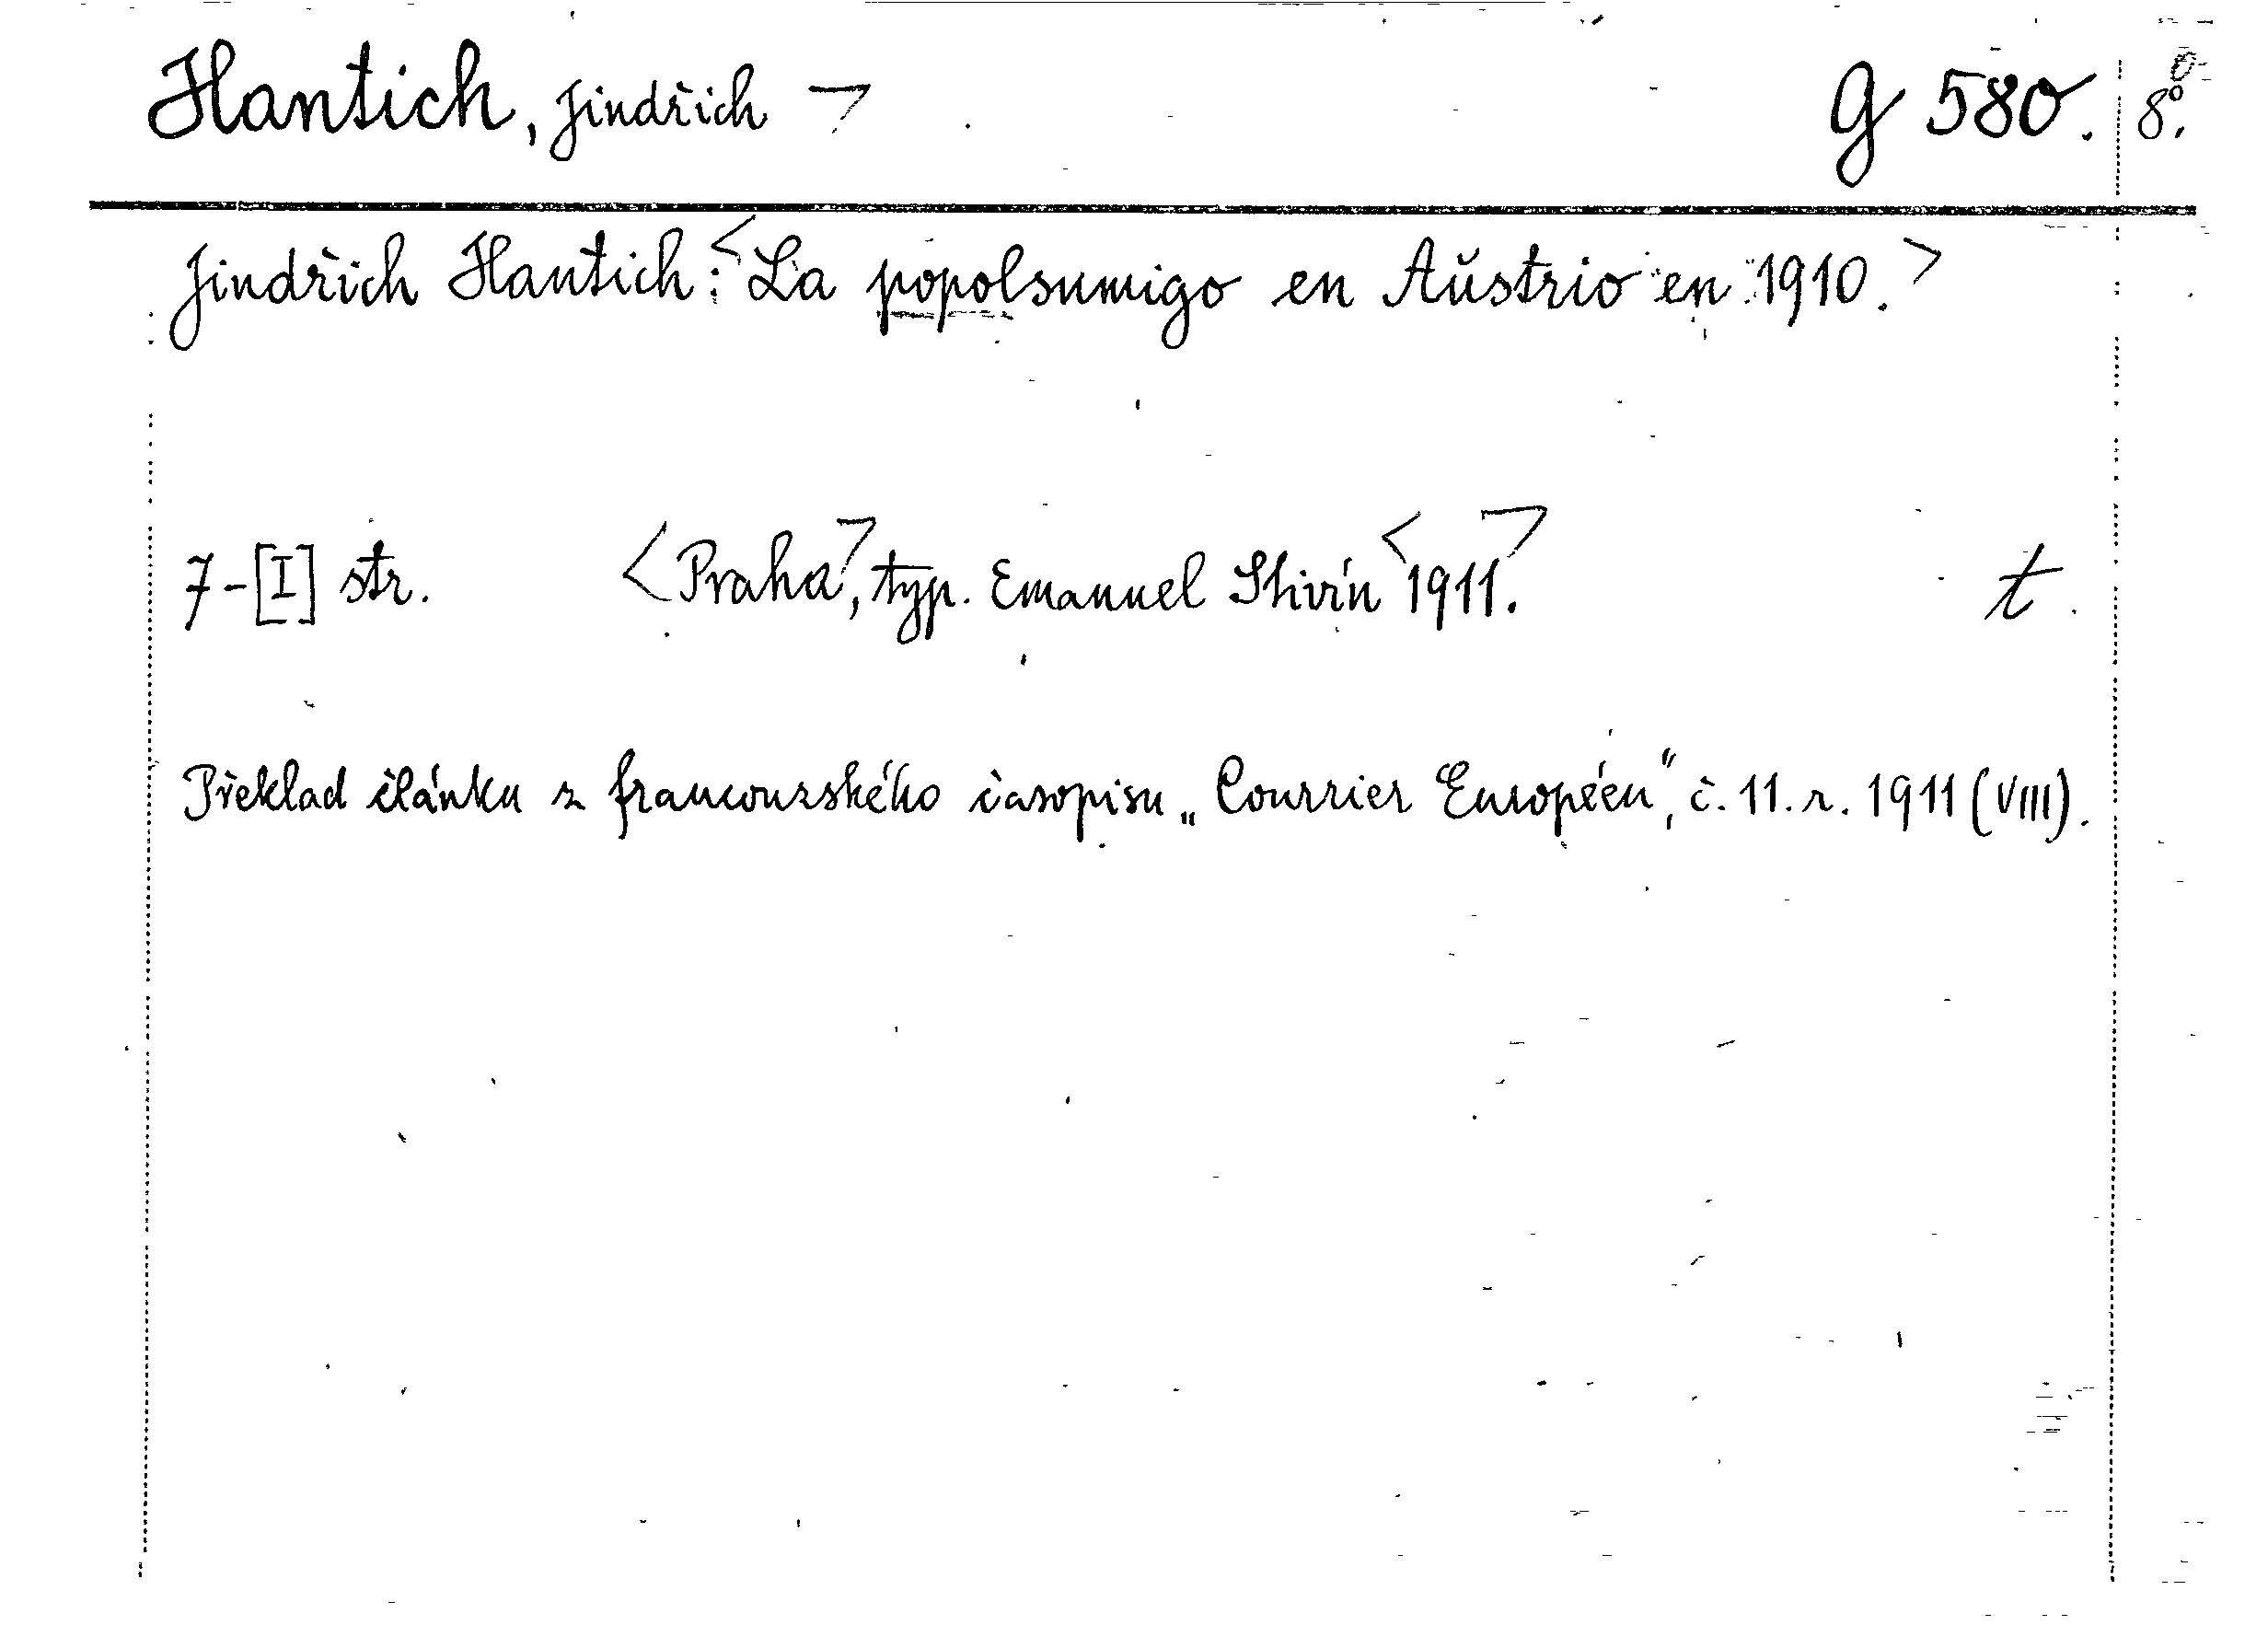 Hantich, Jindřich > g 580. 8°.
Jindřich Hantich: <La popolsumigo en Aŭstrio en 1910.>
7-[I] str. <Praha>, typ. Emanuel Stivín <1911.> t.
Překlad článku z francouzského časopisu „Courrier Européen", č. 11. r. 1911 (VIII).